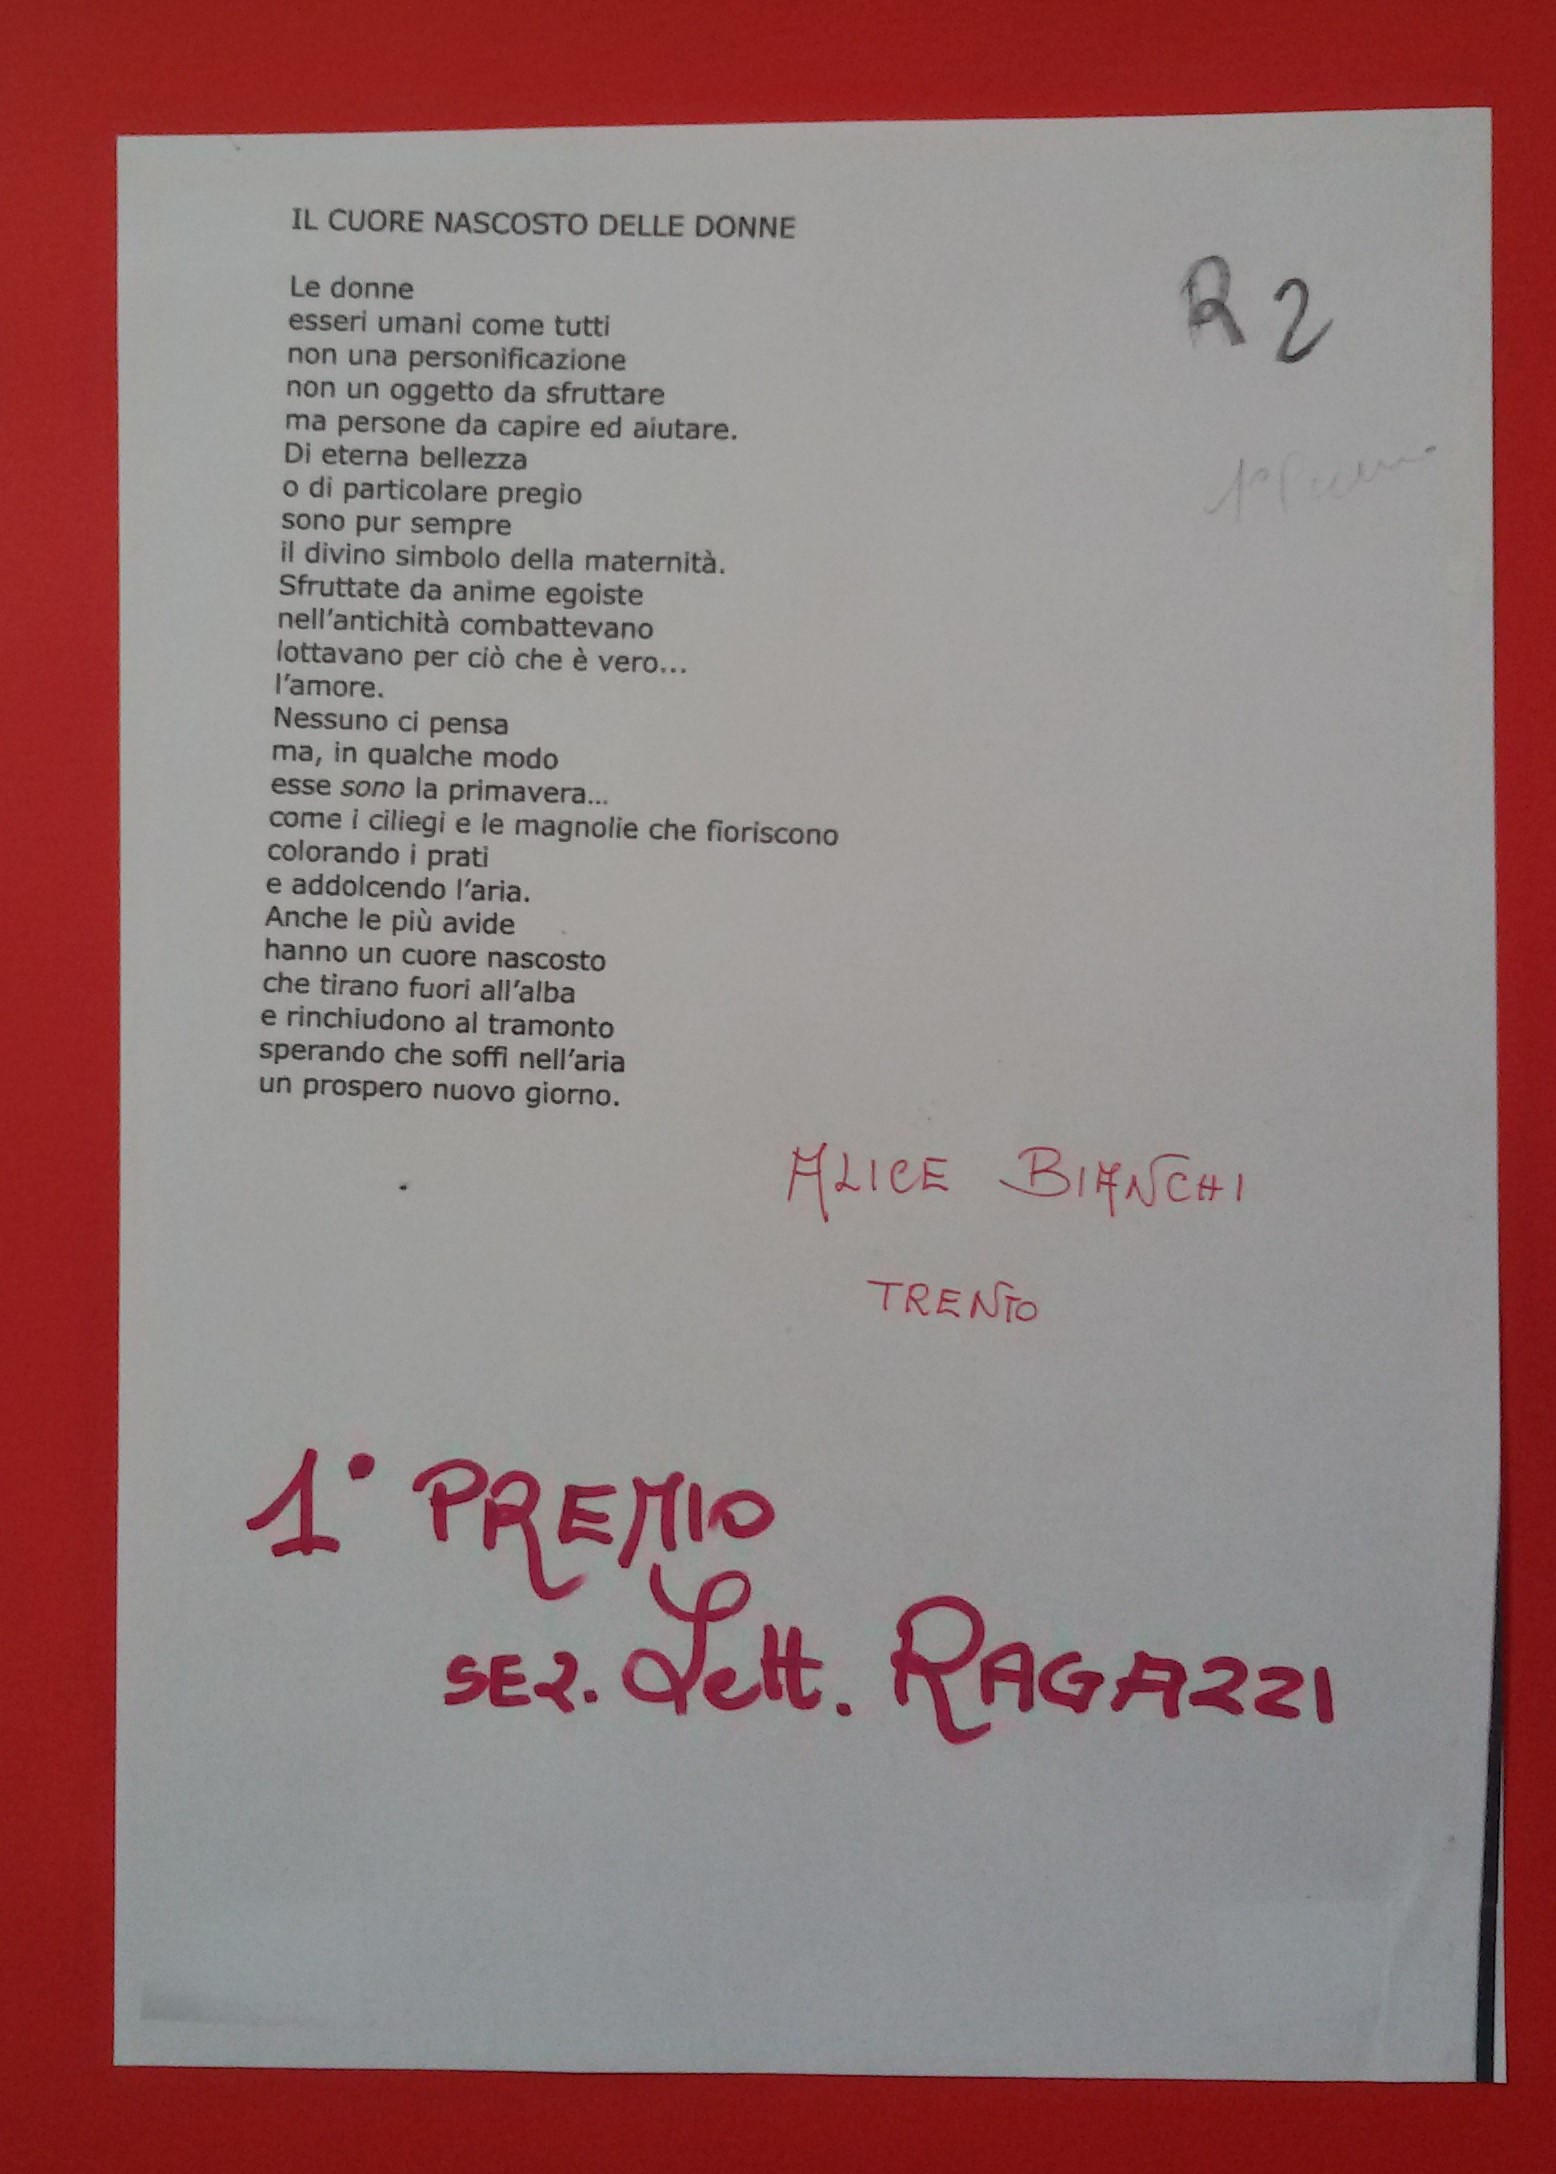 IL CUORE NASCOSTO DELLE DONNE
R 2
Le donne
esseri umani come tutti
non una personificazione
non un oggetto da sfruttare
ma persone da capire ed aiutare.
1° Premio
Di eterna bellezza
o di particolare pregio
sono pur sempre
il divino simbolo della maternità.
Sfruttate da anime egoiste
nell'antichità combattevano
lottavano per ciò che è vero...
l'amore.
Nessuno ci pensa
ma, in qualche modo
esse sono la primavera...
come i ciliegi e le magnolie che fioriscono
colorando i prati
e addolcendo l'aria.
Anche le più avide
hanno un cuore nascosto
che tirano fuori all'alba
e rinchiudono al tramonto
sperando che soffi nell'aria
un prospero nuovo giorno.
ALICE BIANCHI
TRENTO
1° PREMIO
SEZ. Lett. RAGAZZI